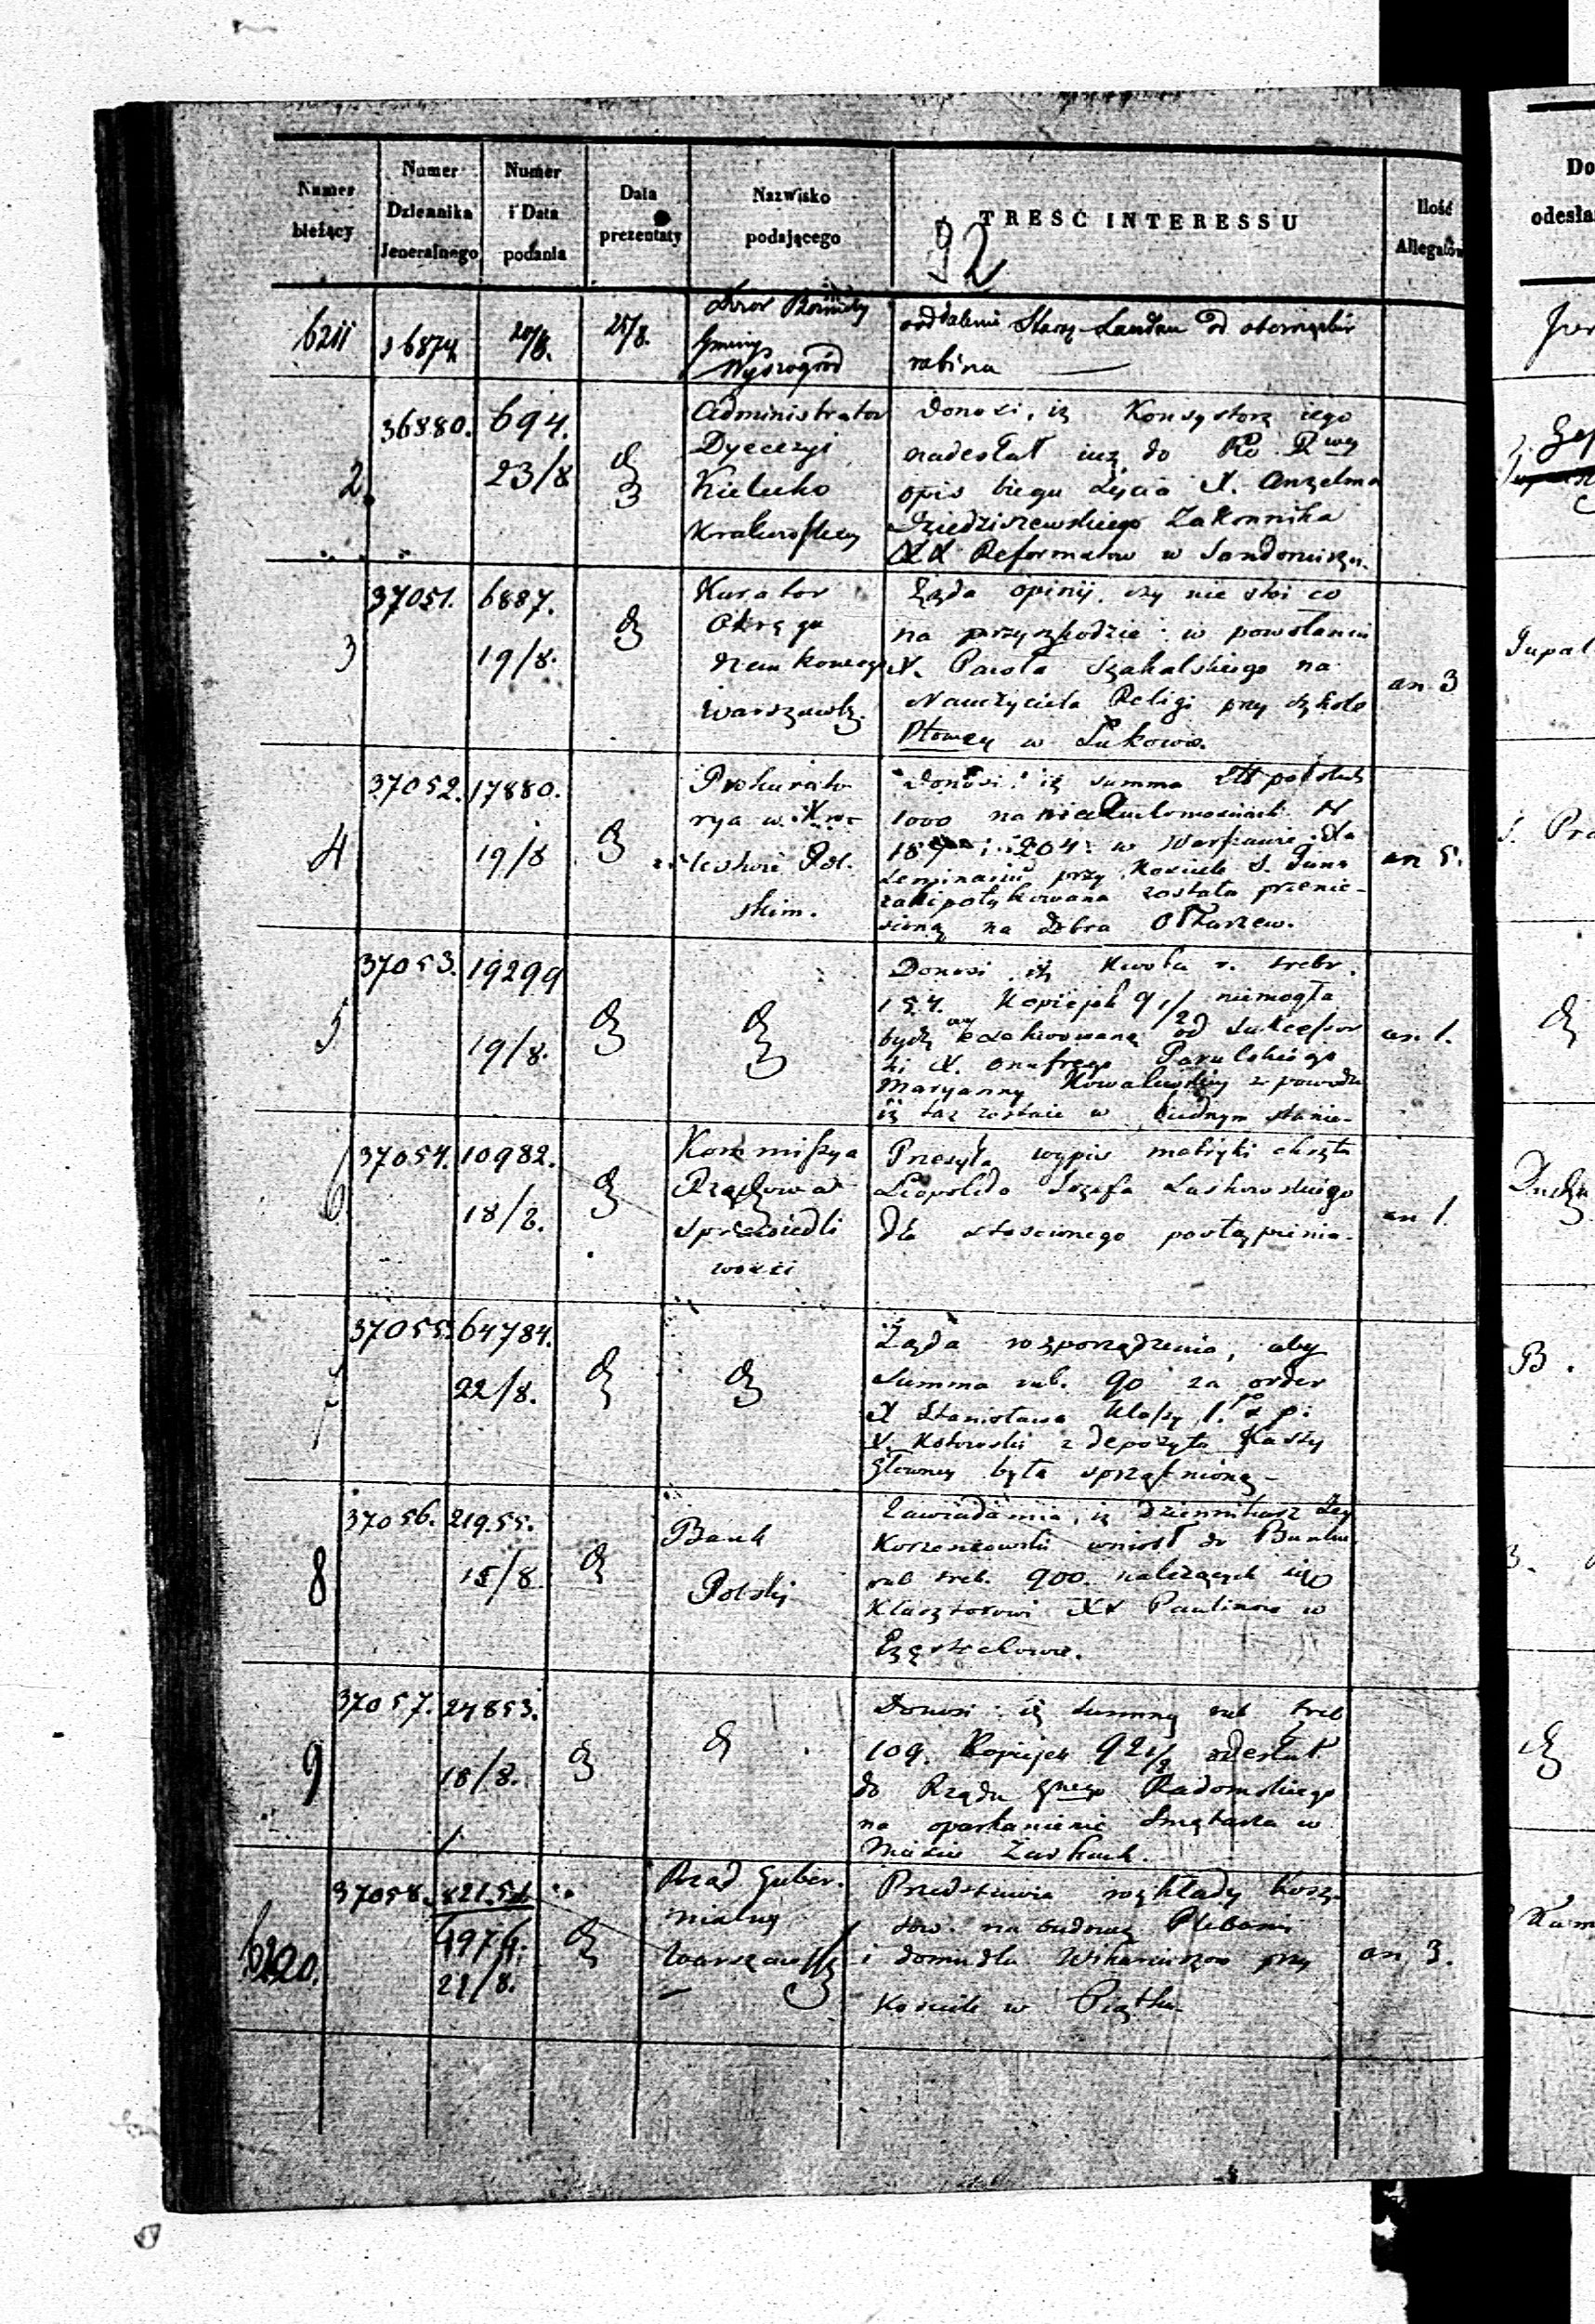 Numer bieżący
Numer Dziennika Jeneralnego
Numer i Data podania
Data prezentaty
Nazwisko podającego
TREŚĆ INTERESSU
Ilość Allegatów
Do
odesła
92
6211 36874 20/8. 25/8.
Dozor Bożniczy
Gminy
Wyszogród
oddalenia Landau od obowiązków
rabina
2. 36880. 694.
23/8
Administrator
Dyecezyi
Kielecko
Krakowskiey
Donosi, iż Konsystorz iego
nadesłał iuż do Ko. Rwey
opis biegu życia X. Anzelma
Dziedziszewskiego Zakonnika
XX Reformatow w Sandomierzu.
3 37051. 6887.
19/8.
Kurator
Okręgu
Naukowego
Warszawsk.
Żąda opinij, czy nie stoi co
na przyszkodzie w powołaniu
X. Pawła Szakalskiego na
Nauczyciela Religi przy szkole
w Łukowie.
an 3
4 37052. 17880.
19/8
Prokurato
rya w Kró-
lestwie Pol-
skim.
Donosi iż summa
1000 na nieruchomościach N
204 w Warszawie dla
Seminarium przy Kościele S. Jana
zahipotykowana została przenie-
sioną na dobra Ołtarzew.
an 5.
5 37053. 19299
19/8.
Donosi iż Kwota r. srebr.
154. Kopiejek 91/2 niemogła
bydź od Sukcesor
ki X. Onufrego Parulskiego
Maryanny Kowalewskiey z powodu
iż taż zostaie w biednym stanie.
an 1.
6 37054. 10982.
18/8.
Kommissya
Rządowa
Sprawiedli
wości
Przesyła wypis metryki chrztu
Leopolda Józefa Laskowskiego
dla stosownego postąpienia.
an 1.
7 37055. 64784.
22/8.
Żąda rozporządzenia, aby
Summa rub. 90 za order
S Stanisława Klassy 1.
X. Kotowski z depozytu Kassy
Głowney była
8 37056. 21955.
15/8
Bank
Polski
Zawiadamia, iż dziennikarz
Korzeniowski wniosł do Banku
rub sreb. 900. należących się
Klasztorowi XX Paulinow w
Częstochowie.
9 37057. 24853.
18/8.
Donosi iż Summę rub sreb
109. Kopiejek 92 1/2 odesłał
do Rządu Gnego Radomskiego
na oparkanienie Smętarza w
Mieście Żarkach.
6220. 37058. 82151
4976.
21/8.
Rząd Guber.
nialny
Warszawsk
Przedstawia rozkłady Kosz-
tow na budowę Plebanii
i domu dla Wikaryuszow przy
Kościele w Piątku.
an 3.